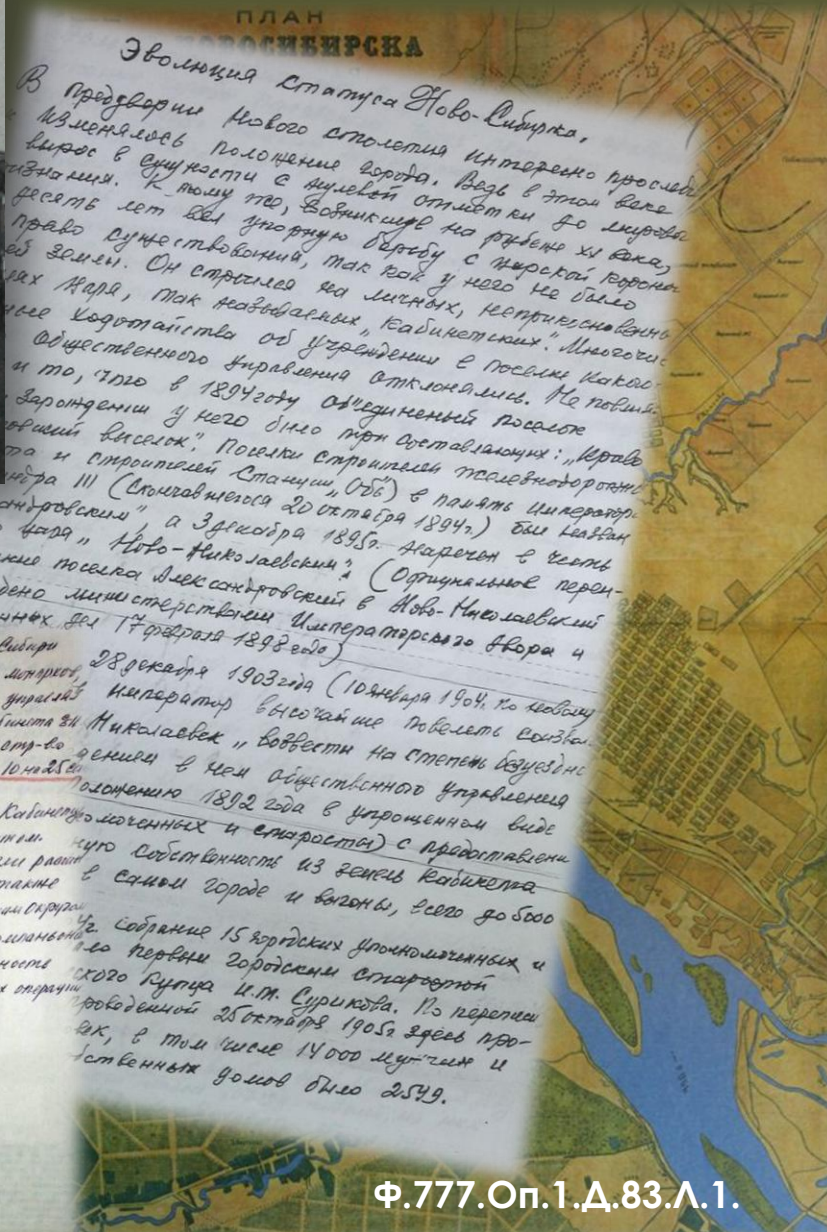 ПЛАН
НОВОСИБИРСКА
Эволюция статуса Ново-Сибирка.
В преддверии Нового столетия интересно прослед
изменялось положение города. Ведь в этом веке
вырос в сущности с нулевой отметки до мирово
изнания. К тому же, возникшув на рубеже XX века,
десять лет вел упорную борьбу с царской короно
право существования, так как у него не было
ей земли. Он строился на личных, неприкосновенны
лях Царя, так называемых "Кабинетских". Многочис
ные ходотайства об учреждении в поселке какого
Общественного управления отклонялись. Не повлия
и то, что в 1894 году объединеный поселок
зарождении у него было три составляющих: "Криво
овский выселок". Поселки строителей железнодорожно
та и строителей станции "Обь") в память императора
ндра III (скончавшегося 20 октября 1894 г.) был назван
сандровским", а 3 декабря 1895г. наречен в честь
царя "Ново-Николаевским". (Официальное переи-
ние поселка Александровский в Ново-Николаевский
дено министерством Императорского двора и
нных дел 17 февраля 1898 года)
28 декабря 1903 года (10 января 1904г. по новому
император высочайше повелеть соизвол
Николаевск "возвести на степень безуездно
дением в нем общественного управления
положению 1892 года в упрощенном виде
омоченных и старосты) с предоставлени
ную собственность из земель Кабинета
в самом городе и выгоны, всего до 5000
г. собрание 15 городских уполномоченных и
ло первым городским старостой
ского купца И.Т. Сурикова. По переписи
проведенной 25 октября 1905г здесь про-
век, в том числе 14000 муж-чин и
бственных домов было 2549.
Сибири
монархов,
управляв
бинета Е.И
отр-во
10 на 25 са
Кабинету
том.
ли
также
им округом
омпаньона
ность
х операции
Ф.777.Оп.1.Д.83.Л.1.